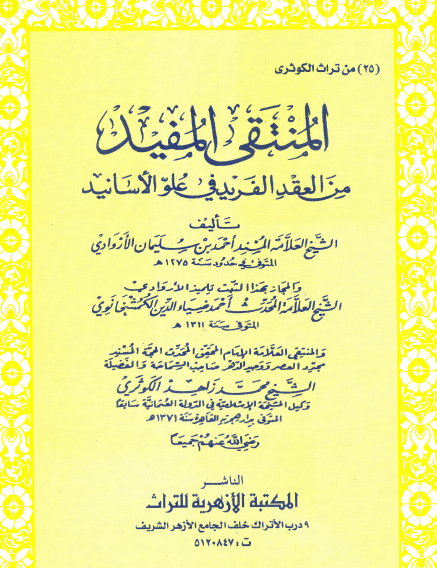 (٢٥) من تراث الكوثرى
المُنْتَقَى المُفِيد
مِنَ العِقْدِ الفَرِيدِ فِي عُلُوِّ الأسَانِيد
تأليف
الشيخ العلامة المسند أحمد بن سليمان الأروادي
المتوفى في حدود سنة ١٢٧٥ هـ
والمجاز بهذا الثبت تلميذ الأروادي
الشيخ العلامة المحدث أحمد ضياء الدين الكمشخانوي
المتوفى سنة ١٣١١ هـ
والمنتقي العلامة الإمام المحقق المحدث الحجة المسند
مجدد العصر ووحيد الدهر صاحب السماحة والفضيلة
الشيخ محمد زاهد الكوثري
وكيل المشيخة الإسلامية في الدولة العثمانية سابقا
المتوفى القاهرة سنة ١٣٧١ هـ
رضي الله عنهم جميعا
الناشر
المكتبة الأزهرية للتراث
٩ درب الأتراك خلف الجامع الأزهر الشريف
ت : ٥١٢٠٨٤٧